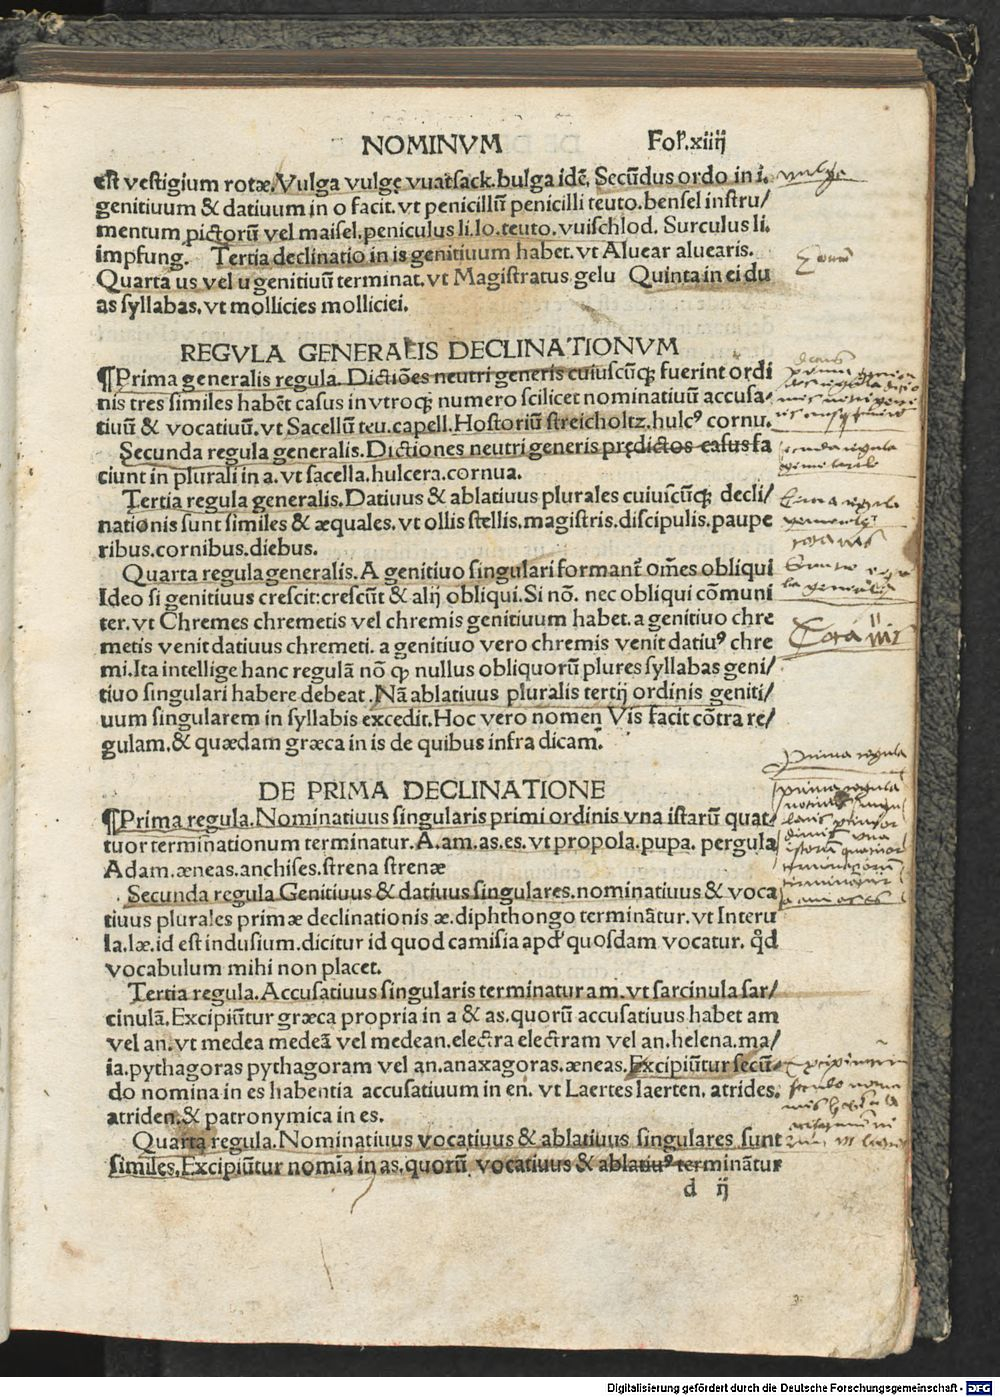 NOMINVM Fol'.xiiij
est vestigium rotæ. Vulga vulgę vuatsack. bulga idē. Secūdus ordo in i.
genitiuum & datiuum in o facit. vt penicillū penicilli teuto. bensel instru/
mentum pictorū vel maisel. peniculus li. lo. teuto. vuischlod. Surculus li.
impfung. Tertia declinatio in is genitiuum habet. vt Aluear aluearis.
Quarta us vel u genitiuū terminat. vt Magistratus gelu Quinta in ei du
as syllabas. vt mollicies molliciei.
REGVLA GENERALIS DECLINATIONVM
¶Prima generalis regula. Dictiōes neutri generis cuiuscūqꝫ fuerint ordi
nis tres similes habēt casus in vtroqꝫ numero scilicet nominatiuū accusa-
tiuū & vocatiuū. vt Sacellū teu. capell. Hostoriū streicholtz. hulcꝰ cornu.
Secunda regula generalis. Dictiones neutri generis prędictos casus fa
ciunt in plurali in a. vt sacella. hulcera. cornua.
Tertia regula generalis. Datiuus & ablatiuus plurales cuiuscūqꝫ decli/
nationis sunt similes & æquales. vt ollis stellis. magistris. discipulis. paupe
ribus. cornibus. diebus.
Quarta regula generalis. A genitiuo singulari formant̄ om̄es obliqui
Ideo si genitiuus crescit: crescūt & alij obliqui. Si nō. nec obliqui cōmuni
ter. vt Chremes chremetis vel chremis genitiuum habet. a genitiuo chre
metis venit datiuus chremeti. a genitiuo vero chremis venit datiuꝰ chre
mi. Ita intellige hanc regulā nō qꝫ nullus obliquorū plures syllabas geni/
tiuo singulari habere debeat. Nā ablatiuus pluralis tertij ordinis geniti/
uum singularem in syllabis excedit. Hoc vero nomen Vis facit cōtra re/
gulam. & quædam græca in is de quibus infra dicam̄.
DE PRIMA DECLINATIONE
¶Prima regula. Nominatiuus singularis primi ordinis vna istarū quat-
tuor terminationum terminatur. A. am. as. es. vt propola. pupa. pergula
Adam. æneas. anchises. strena strenæ
Secunda regula Genitiuus & datiuus singulares. nominatiuus & voca
tiuus plurales primæ declinationis æ. diphthongo terminātur. vt Interu
la. læ. id est indusium. dicitur id quod camisia apd' quosdam vocatur. qd̄
vocabulum mihi non placet.
Tertia regula. Accusatiuus singularis terminatur am. vt sarcinula sar/
cinulā. Excipiūtur græca propria in a & as. quorū accusatiuus habet am
vel an. vt medea medeā vel medean. electra electram vel an. helena. ma/
ia. pythagoras pythagoram vel an. anaxagoras. æneas. Excipiūtur secū-
do nomina in es habentia accusatiuum in en. vt Laertes laerten. atrides.
atriden. & patronymica in es.
Quarta regula. Nominatiuus vocatiuus & ablatiuus singulares sunt
similes. Excipiūtur nomīa in as. quorū vocatiuus & ablatiuꝰ terminātur
d ij
vulga
prima regula
Digitalisierung gefördert durch die Deutsche Forschungsgemeinschaft - DFG